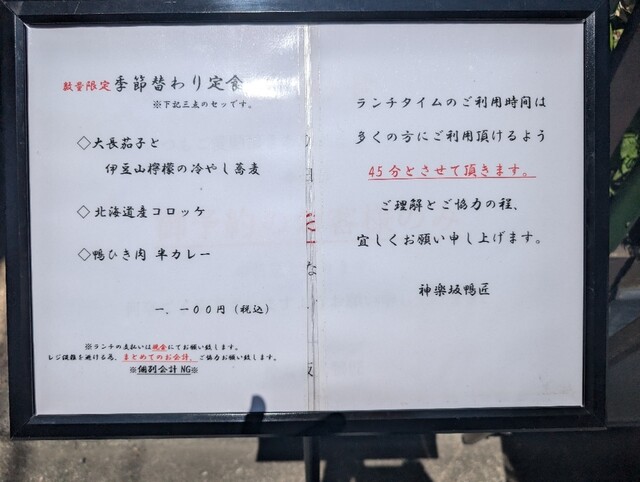 数量限定 季節替わり定食
※下記三点のセッです。
◇大長茄子と
伊豆山檸檬の冷やし蕎麦
◇北海道産コロッケ
◇鴨ひき肉 半カレー
一．一〇〇円（税込）
※ランチの支払いは現金にてお願い致します。
レジ混雑を避ける為、まとめてのお会計、ご協力お願い致します。
※個別会計NG※
ランチタイムのご利用時間は
多くの方にご利用頂けるよう
45分とさせて頂きます。
ご理解とご協力の程、
宜しくお願い申し上げます。
神楽坂鴨匠